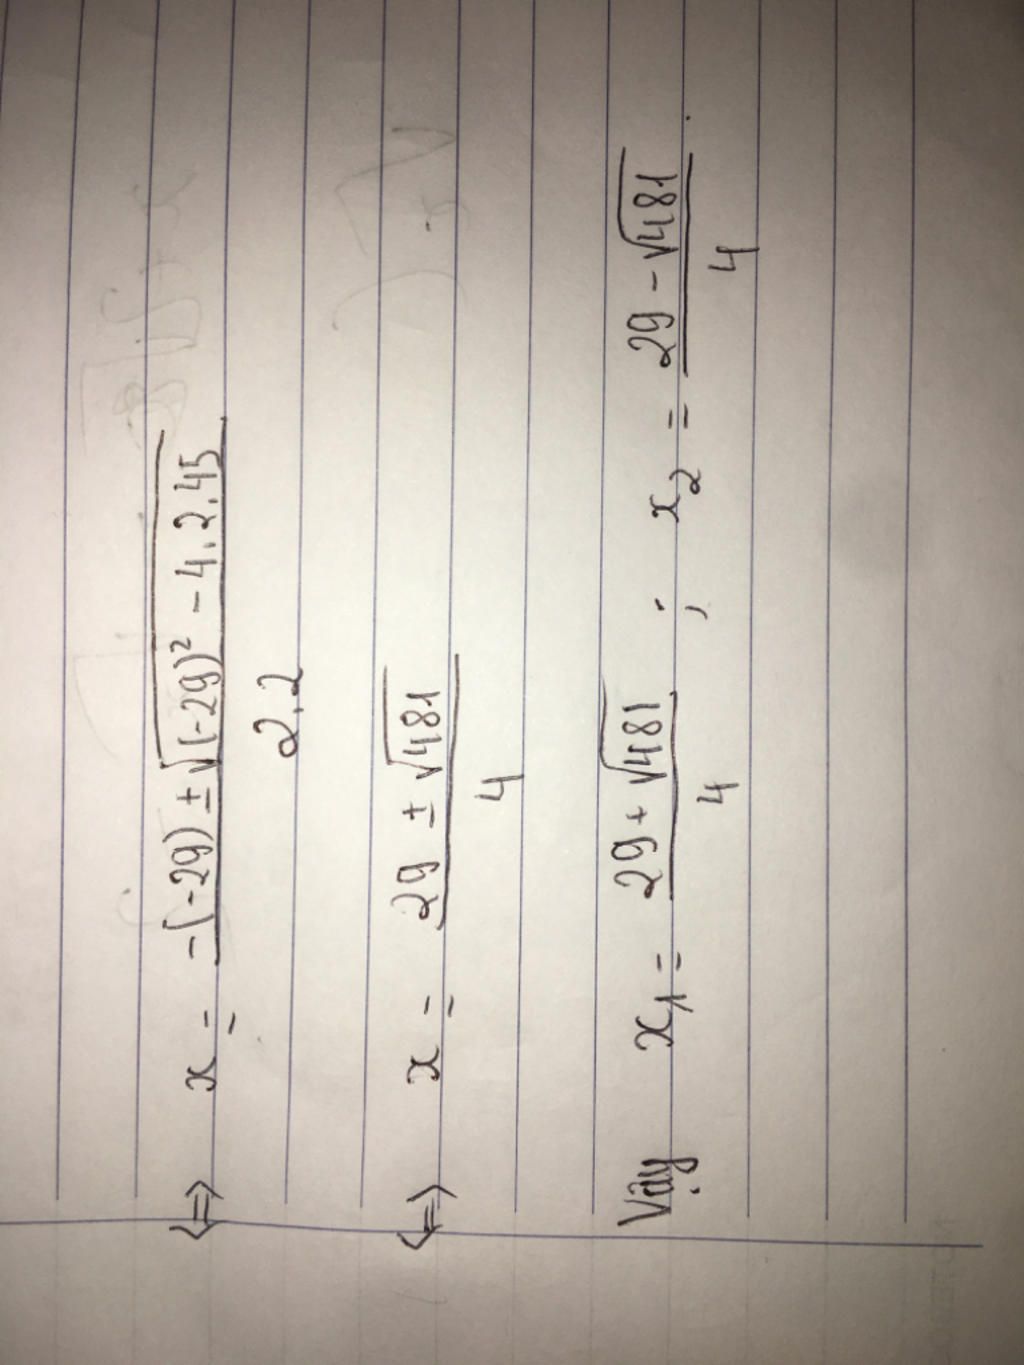 ⇔ x = (-(-29) ± √((-29)² - 4.2.45)) / (2.2)
⇔ x = (29 ± √481) / 4
Vậy x₁ = (29 + √481) / 4 ; x₂ = (29 - √481) / 4.